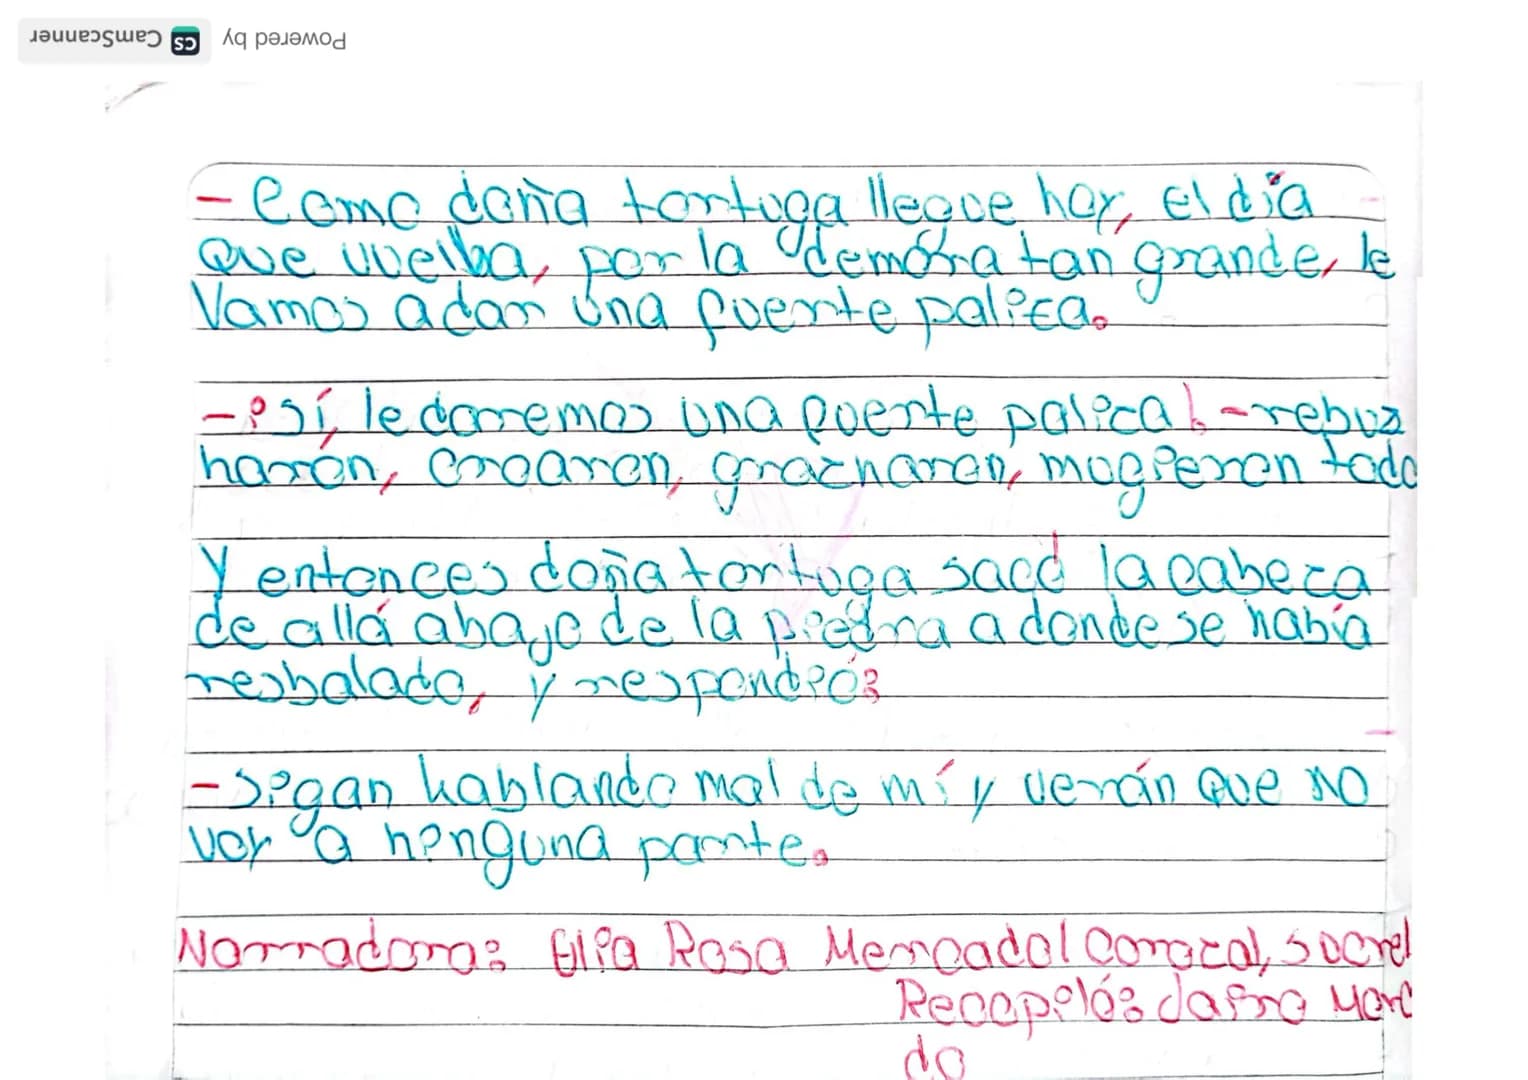 Powered by CS CamScanner
- Como doña tortuga llegue hoy, el día
que vuelba, por la demora tan grande, le
Vamos a dar una fuerte palisa.
- ¡sí, le darremos una fuerte palica! -rebuz
harón, croaron, graznaron, mugieron todo
Y entonces doña tortuga sacó la cabeza
de allá abajo de la piedra a donde se había
resbalado, y respondió:
- sigan hablando mal de mí y verán que no
voy a ninguna parte.
Narradora: Elia Rosa Mercadal Corozal, sucre
Recopiló: Jairo Merc
do